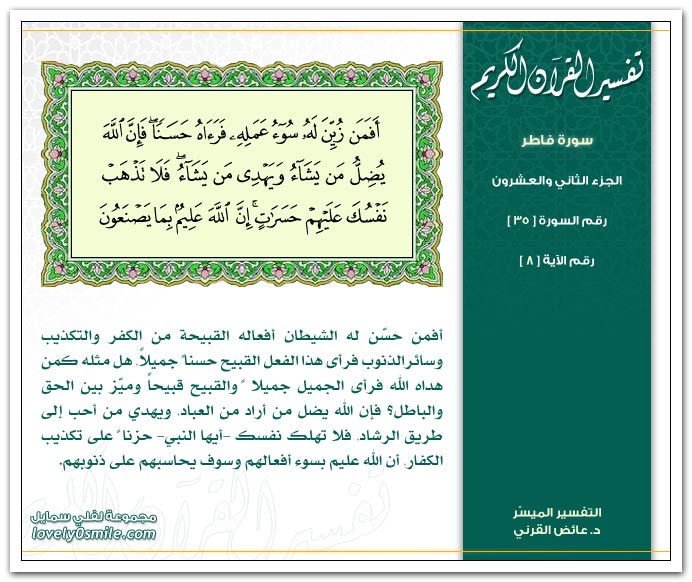 تفسير القرآن الكريم
سورة فاطر
الجزء الثاني والعشرون
رقم السورة [ ٣٥ ]
رقم الآية [ ٨ ]
أَفَمَن زُيِّنَ لَهُۥ سُوٓءُ عَمَلِهِۦ فَرَءَاهُ حَسَنٗاۖ فَإِنَّ ٱللَّهَ
يُضِلُّ مَن يَشَآءُ وَيَهۡدِي مَن يَشَآءُۖ فَلَا تَذۡهَبۡ
نَفۡسُكَ عَلَيۡهِمۡ حَسَرَٰتٍۚ إِنَّ ٱللَّهَ عَلِيمُۢ بِمَا يَصۡنَعُونَ
أفمن حسّن له الشيطان أفعاله القبيحة من الكفر والتكذيب
وسائر الذنوب فرأى هذا الفعل القبيح حسناً جميلاً، هل مثله كمن
هداه الله فرأى الجميل جميلا ً والقبيح قبيحاً وميّز بين الحق
والباطل؟ فإن الله يضل من أراد من العباد، ويهدي من أحب إلى
طريق الرشاد، فلا تهلك نفسك -أيها النبي- حزنا ً على تكذيب
الكفار، أن الله عليم بسوء أفعالهم وسوف يحاسبهم على ذنوبهم.
التفسير الميسّر
د. عائض القرني
مجموعة لفلي سمايل
lovely0smile.com
تفسير القرآن الكريم